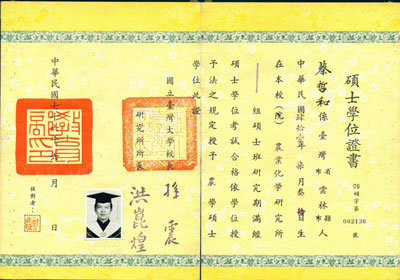 碩士學位證書
碩字第
002136
號
蔡哲和係臺灣省雲林縣人
中華民國肆拾 年柒月叁 日生
在本校(院)農業化學研究所
組碩士班研究期滿經
碩士學位考試合格依學位授
予法之規定授予農學碩士
學位此證
國立臺灣大學校長 孫震
研究所所長 洪崑煌
中華民國七 年 月 日
核對者: